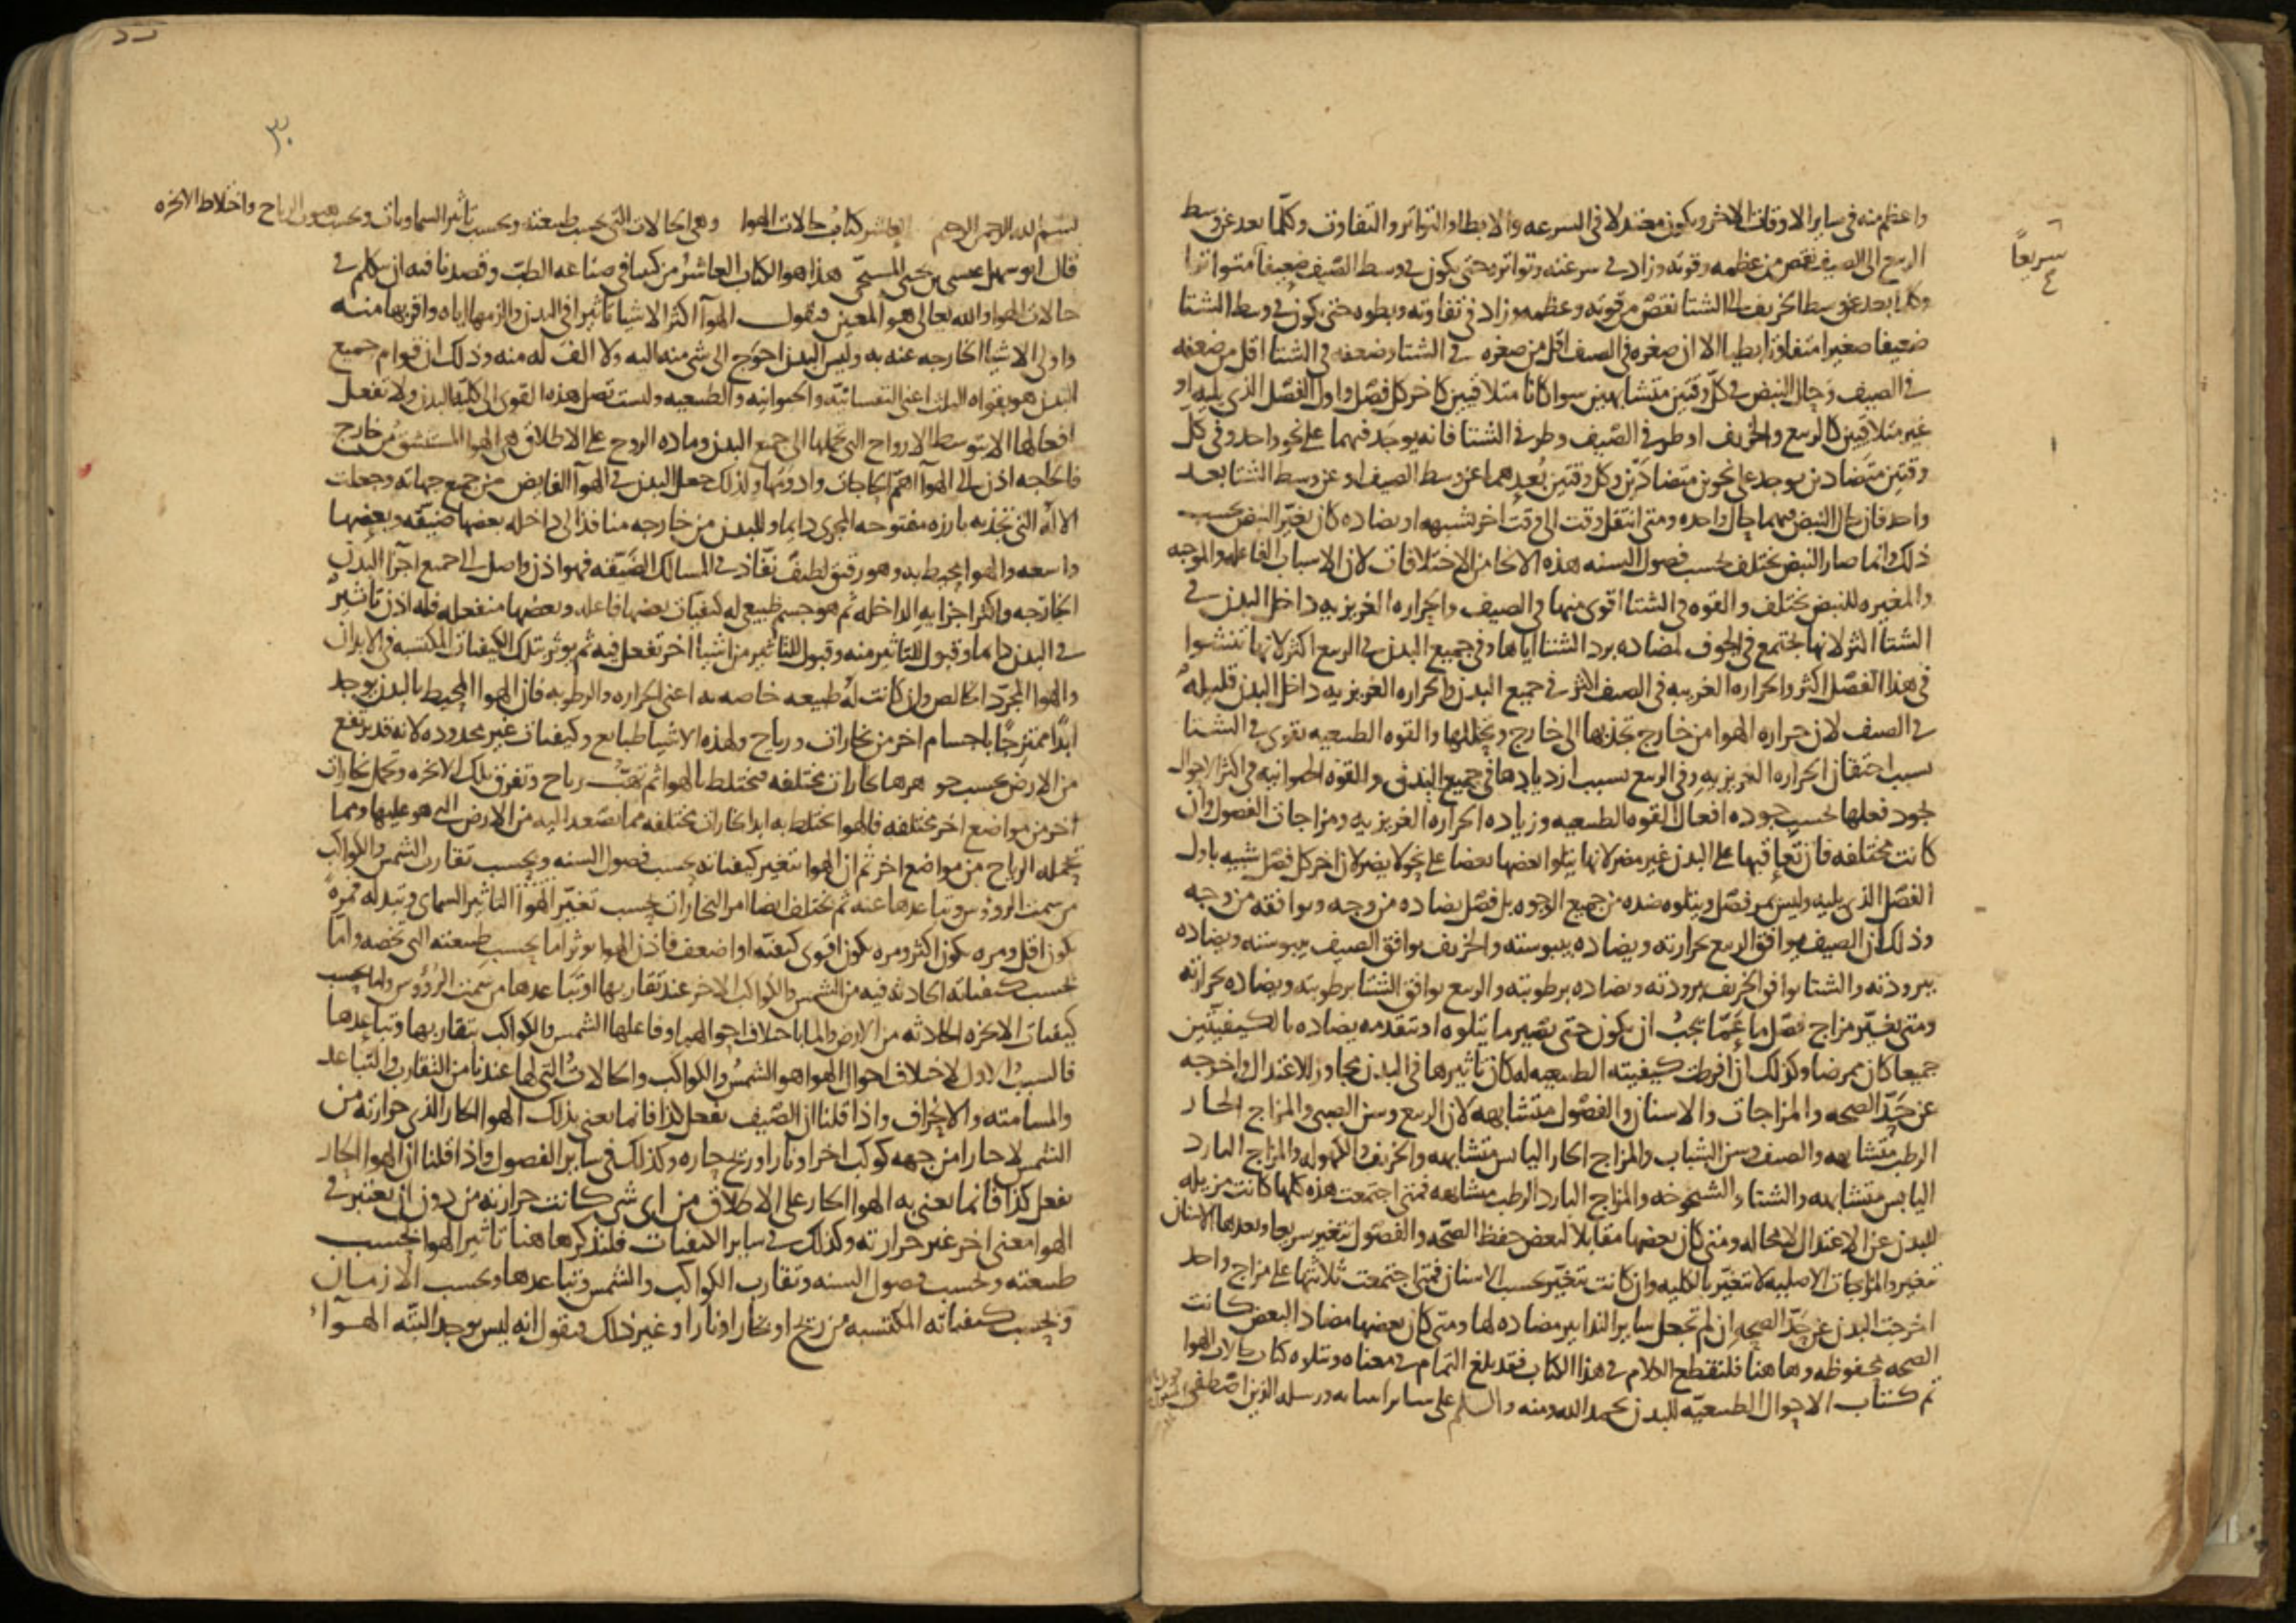 واعظم منه في ساير الاوقات الاخر ويكون معتدلا في السرعه والابطا والتواتر والتفاوت وكلما بعد عن وسط
سريعاً
الربيع الى الصيف نقص من عظمه وقوته وزاد في سرعته وتواتره حتى يكون في وسط الصيف ضعيفا متواترا
وكلما بعد عن وسط الخريف الى الشتا نقص من قوته وعظمه وزاد في تفاوته وبطوه حتى يكون في وسط الشتا
ضعيفا صغيرا متفاوتا بطيا الا ان صغره في الصيف اقل من صغره في الشتا وضعفه في الشتا اقل من ضعفه
في الصيف وحال النبض في كل وقتين متشابهين سوا كانا متلاقيين كاخر كل فصل واول الفصل الذي يليه او
غير متلاقيين كالربيع والخريف او طرفي الصيف وطرفي الشتا فانه يوجد فيهما على نحو واحد وفي كل
وقتين متضادين يوجد على نحوين متضادين وكل وقتين بعدهما عن وسط الصيف او عن وسط الشتا بعد
واحد فان حال النبض فيهما حال واحده ومتى انتقل وقت الى وقت اخر يشبهه او يضاده كان تغير النبض بحسب
ذلك وانما صار النبض يختلف بحسب فصول السنه هذه الانحا من الاختلافات لان الاسباب الفاعله والموجبه
والمغيره للنبض تختلف والقوه في الشتا اقوى منها في الصيف والحراره الغريزيه داخل البدن في
الشتا اكثر لانها تجتمع في الجوف لمضاده برد الشتا اياها وفي جميع البدن في الربيع اكثر لانها تنشوا
في هذا الفصل اكثر والحراره الغريبه في الصيف اكثر في جميع البدن والحراره الغريزيه داخل البدن قليله
في الصيف لان حراره الهوا من خارج تجذبها الى خارج وتحللها والقوه الطبيعيه تقوى في الشتا
بسبب احتقان الحراره الغريزيه وفي الربيع بسبب ازديادها في جميع البدن والقوه الحيوانيه في اكثر الاحوال
تجود فعلها بحسب جوده افعال القوه الطبيعيه وزياده الحراره الغريزيه ومزاجات الفصول وان
كانت مختلفه فان تعاقبها على البدن غير مضر لانها يتلوا بعضها بعضا على نحو لا يضر لان اخر كل فصل شبيه باول
الفصل الذي يليه وليس يمر فصل ويتلوه ضده من جميع الوجوه بل فصل يضاده من وجه ويوافقه من وجه
وذلك ان الصيف يوافق الربيع بحرارته ويضاده بيبوسته والخريف يوافق الصيف بيبوسته ويضاده
ببرودته والشتا يوافق الخريف ببرودته ويضاده برطوبته والربيع يوافق الشتا برطوبته ويضاده بحرارته
ومتى تغير مزاج فصل ما عما يجب ان يكون حتى يصير ما يتلوه او يتقدمه يضاده بالكيفيتين
جميعا كان ممرضا وكذلك ان افرطت كيفيته الطبيعيه له كان تاثيرها في البدن مجاوز للاعتدال واخرجه
عن حد الصحه والمزاجات والاسنان والفصول متشابهه لان الربيع وسن الصبى والمزاج الحار
الرطب متشابهه والصيف وسن الشباب والمزاج الحار اليابس متشابهه والخريف والكهوله والمزاج البارد
اليابس متشابهه والشتا والشيخوخه والمزاج البارد الرطب متشابهه فمتى اجتمعت هذه كلها كانت مزيله
للبدن عن الاعتدال لا محاله ومتى كان بعضها مقابلا لبعض حفظ الصحه والفصول تتغير سريعا وبعدها الاسنان
تتغير والمزاجات الاصليه لا تتغير بالكليه وان كانت تتغير بحسب الاسنان فمتى اجتمعت ثلاثتها على مزاج واحد
اخرجت البدن عن حد الصحه ان لم تجعل ساير التدابير مضاده لها ومتى كان بعضها مضاد البعض كانت
الصحه محفوظه وهاهنا فلنقطع الكلام في هذا الكتاب فقد بلغ التمام في معناه ويتلوه كتاب حالات الهوا
تم كتاب الاحوال الطبيعيه للبدن بحمد الله ومنه والسلم على ساير انبيايه ورسله الذين اصطفى
٣٠
بسم الله الرحمن الرحيم العاشر كتاب حالات الهوا وهي الحالات التي بحسب طبيعته وبحسب تاثير السماويات وبحسب هبوب الرياح واختلاط الابخره
قال ابو سهل عيسى بن يحيى المسيحي هذا هو الكتاب العاشر من كتبنا في صناعه الطب وقصدنا فيه ان نتكلم في
حالات الهوا والله تعالى هو المعين فنقول الهوآ اكثر الاشيا تاثيرا في البدن والزمها اياه واقربها منه
واولى الاشيا الخارجه عنه به وليس البدن احوج الى شي منه اليه ولا الف له منه وذلك ان قوام جميع
البدن هو بقواه الثلث اعني النفسانيه والحيوانيه والطبيعيه وليست تصل هذه القوى الى كليه البدن ولا تفعل
افعالها الا بتوسط الارواح التي تحملها الى جميع البدن وماده الروح على الاطلاق هي الهوا المستنشق من خارج
فالحاجه اذن الى الهوآ اهم الحاجات وادومها ولذلك جعل البدن في الهوآ الفايض من جميع جهاته وجعلت
الاله التي تجذبه بارزه مفتوحه المجرى دايما وللبدن من خارجه منافذ الى داخله بعضها ضيقه وبعضها
واسعه والهوا محيط به وهو رقيق لطيف نفاذ في المسالك الضيقه فهو اذن واصل الى جميع اجزآ البدن
الخارجه واكثر اجزايه الداخله ثم هو جسم طبيعي له كيفيات بعضها فاعله وبعضها منفعله فله اذن تاثير
في البدن دايما وقبول للتاثير منه وقبول للتاثير من اشيا اخر تفعل فيه ثم يوثر بتلك الكيفيات المكتسبه في الابدان
والهوا المجرد الخالص وان كانت له طبيعه خاصه به اعني الحراره والرطوبه فان الهوا المحيط بالبدن يوجد
ابدا ممتزجا باجسام اخر من بخارات ورياح ولهذه الاشيا طبايع وكيفيات غير محدوده لانه قد يرتفع
من الارض بحسب جوهرها بخارات مختلفه فتختلط بالهوا ثم تهب رياح وتفرق تلك الابخره وتحمل بخارات
اخر من مواضع اخر مختلفه فالهوا تختلط به ابدا بخارات مختلفه مما يتصعد اليه من الارض التي هو عليها ومما
تحمله الرياح من مواضع اخر ثم ان الهوا تتغير كيفياته بحسب فصول السنه وبحسب تقارب الشمس والكواكب
من سمت الرووس وتباعدها عنه ثم يختلف ايضا امر البخارات بحسب تغير الهوا التاثير السماى وتبدله فمره
يكون اقل ومره يكون اكثر ومره يكون اقوى كيفيه او اضعف فاذن الهوا يوثر اما بحسب طبيعته التي تخصه واما
بحسب كيفياته الحادثه فيه من الشمس والكواكب الاخر عند تقاربها او تباعدها من سمت الرؤوس واما بحسب
كيفيات الابخره الحادثه من الارض والما باختلاف جواهرها وفاعلها الشمس والكواكب بتقاربها وتباعدها
فالسبب الاول لاختلاف احوال الهوا هو الشمس والكواكب والحالات التي لها عندنا من التقارب والتباعد
والمسامته والانحراف واذا قلنا ان الصيف يفعل كذا فانما نعني بذلك الهوا الحار الذي حرارته من
الشمس لا حارا من جهه كوكب اخر او نار او ريح حاره وكذلك في ساير الفصول واذا قلنا ان الهوا الحار
يفعل كذا فانما نعني به الهوا الحار على الاطلاق من اي شي كانت حرارته من دون ان يعتبر في
الهوا معنى اخر غير حرارته وكذلك في ساير الكيفيات فلنذكر هاهنا تاثير الهوا بحسب
طبيعته وبحسب فصول السنه وتقارب الكواكب والشمس وتباعدها وبحسب الازمان
وبحسب كيفياته المكتسبه من ريح او بخار او نار او غير ذلك فنقول انه ليس يوجد البته الهوآء